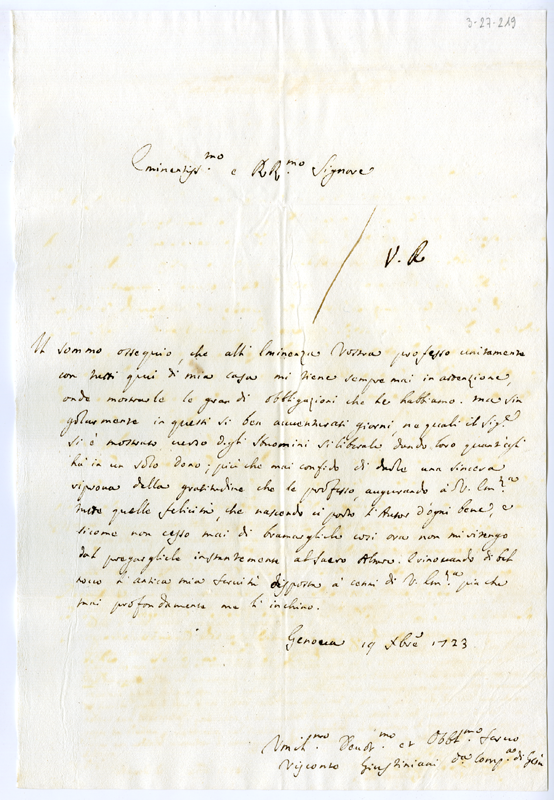 3-27-219
Eminentiss.mo e RR.mo Signore
V. R
Il sommo ossequio, che all'Eminenza Vostra professo unitamente
con tutti quei di mia casa mi tiene sempre mai in attenzione,
onde mostrarle le gran di obbligazioni che le habbiamo. Ma sin
golarmente in questi sì ben avventurati giorni ne quali il Sig.e
si è mostrato verso degli huomini sì liberale dando loro quant'egli
hà in un solo dono; più che mai confido di darle una sincera
riprova della gratitudine che le professo, augurando à V. Em.za
tutte quelle felicità, che nascendo ci portò l'Autor d'ogni bene; e
sicome non cesso mai di bramargliele così ora non mi ritengo
dal pregargliele instantemente al sacro Altare. E rinovando di bel
nuovo l'antica mia servitù disposta à cenni di V. Em.za più che
mai profondamente me l'inchino.
Genova 19 Xbre 1723
Umil.mo Devot.mo et Obbl.mo Servo
Visconte Giustiniani d.a Comp.a di Giesù